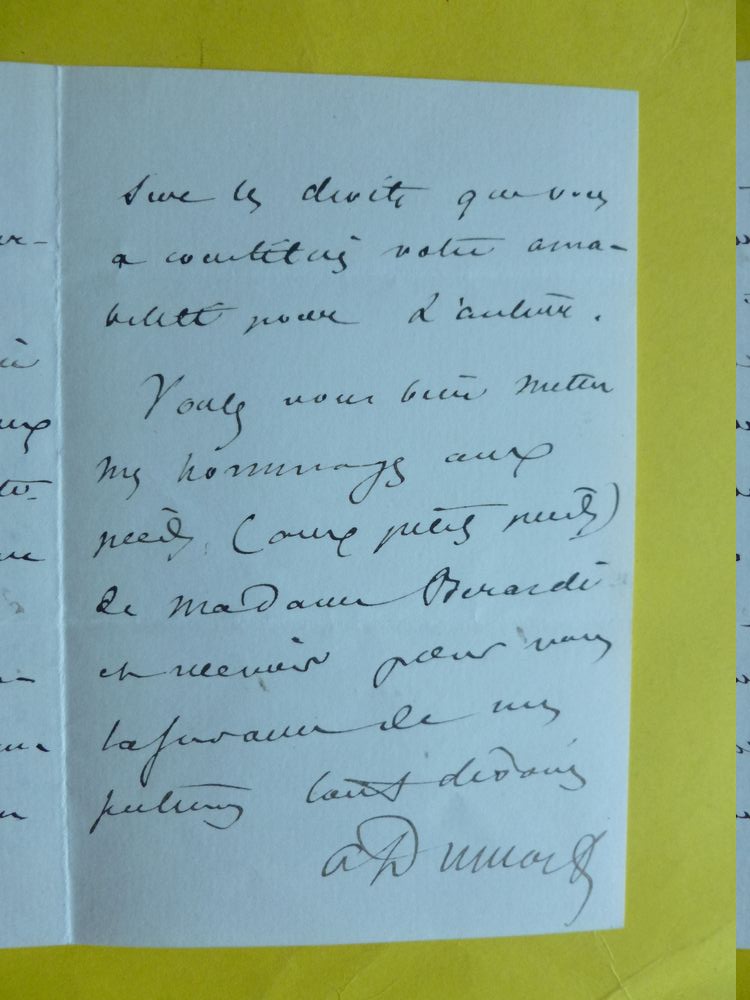 sur les droits que vous
a constitués votre ama-
bilité pour l'auteur.
Voulez vous bien mettre
mes hommages aux
pieds (aux petits pieds)
de madame Berardi
et recevoir pour vous
l'assurance de mes
sentimens tout dévoués
a Dumas